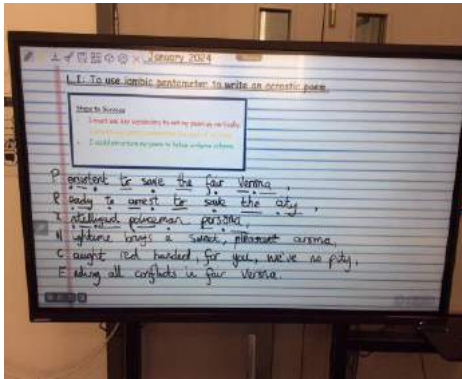 January 2024
L.I: To use iambic pentameter to write an acrostic poem.
Steps to Success
I must use key vocabulary to set my poem up vertically.
I could structure my poem to follow a rhyme scheme.
Persistent to save the fair Verona,
Ready to arrest to save the city,
Intelligent policeman persona,
Nightime brings a sweet, pleasant aroma,
Caught red handed, for you, we've no pity,
Ending all conflicts in fair Verona.